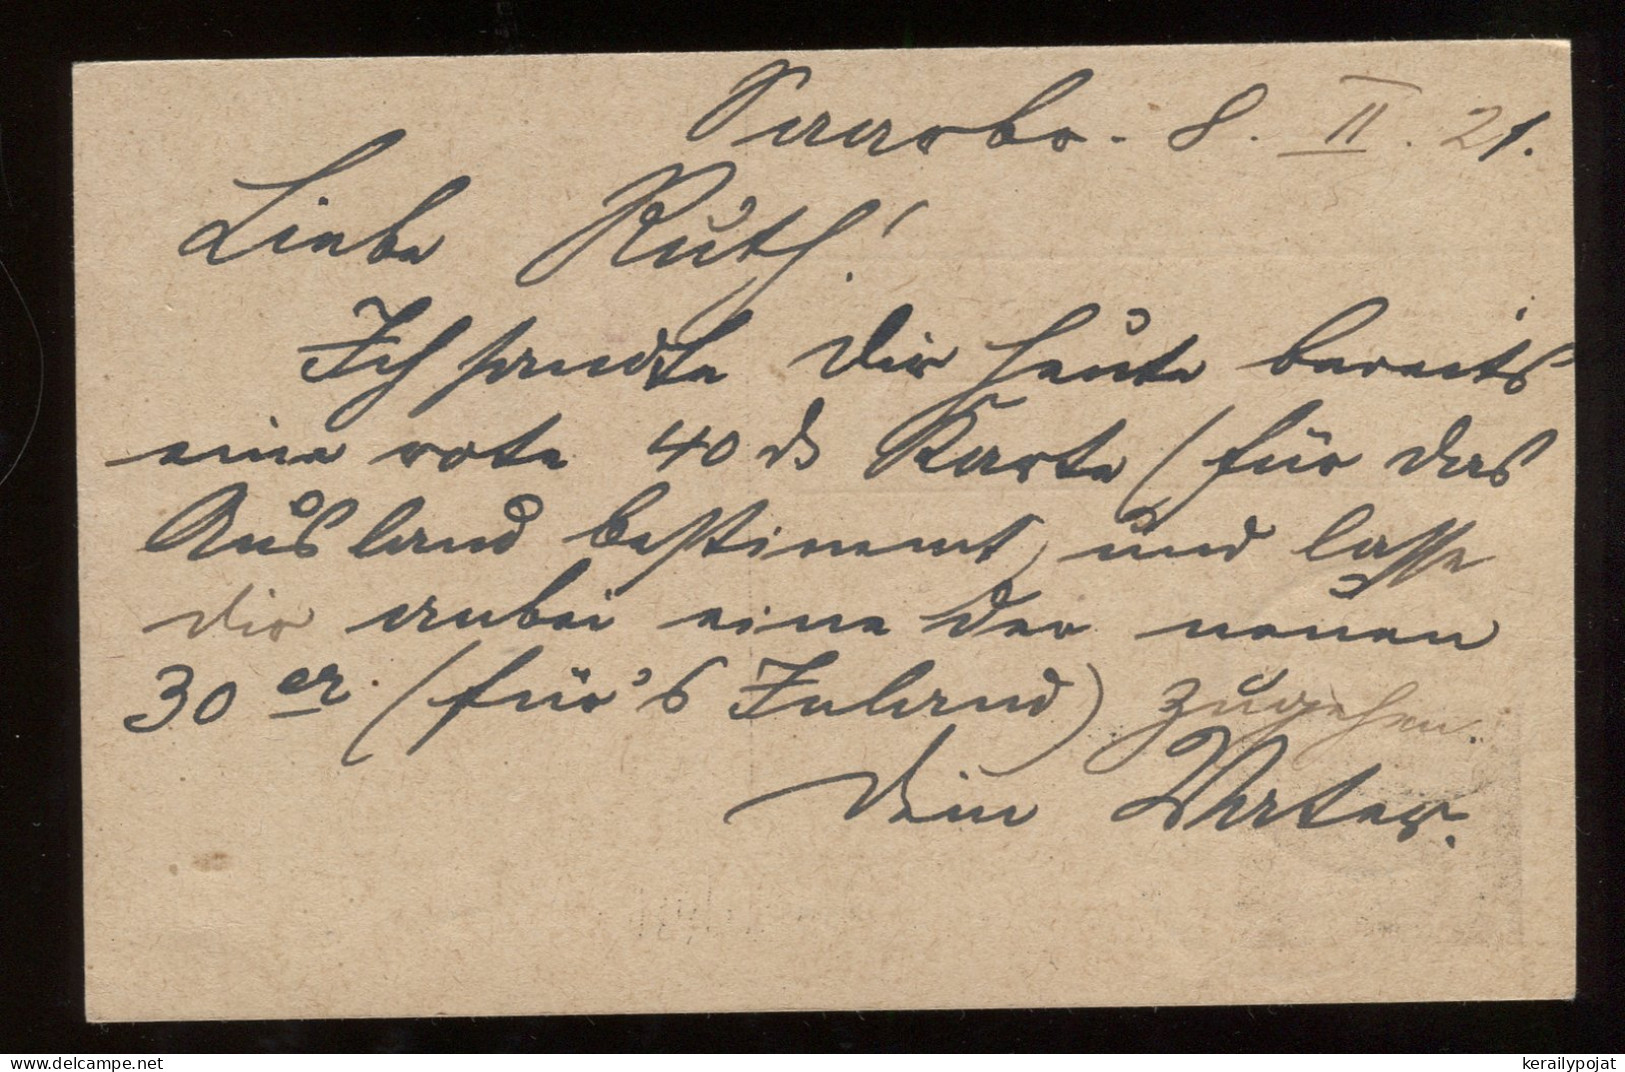 Saarbr. 8. II. 21.
Liebe Ruth!
Ich sandte Dir heute bereits
eine rote 40 ₰ Karte (für das
Ausland bestimmt) und lasse
Dir anbei eine der neuen
30er. (für's Inland) zugehen.
Dein Vater.
delcampe.net
kerailypojat